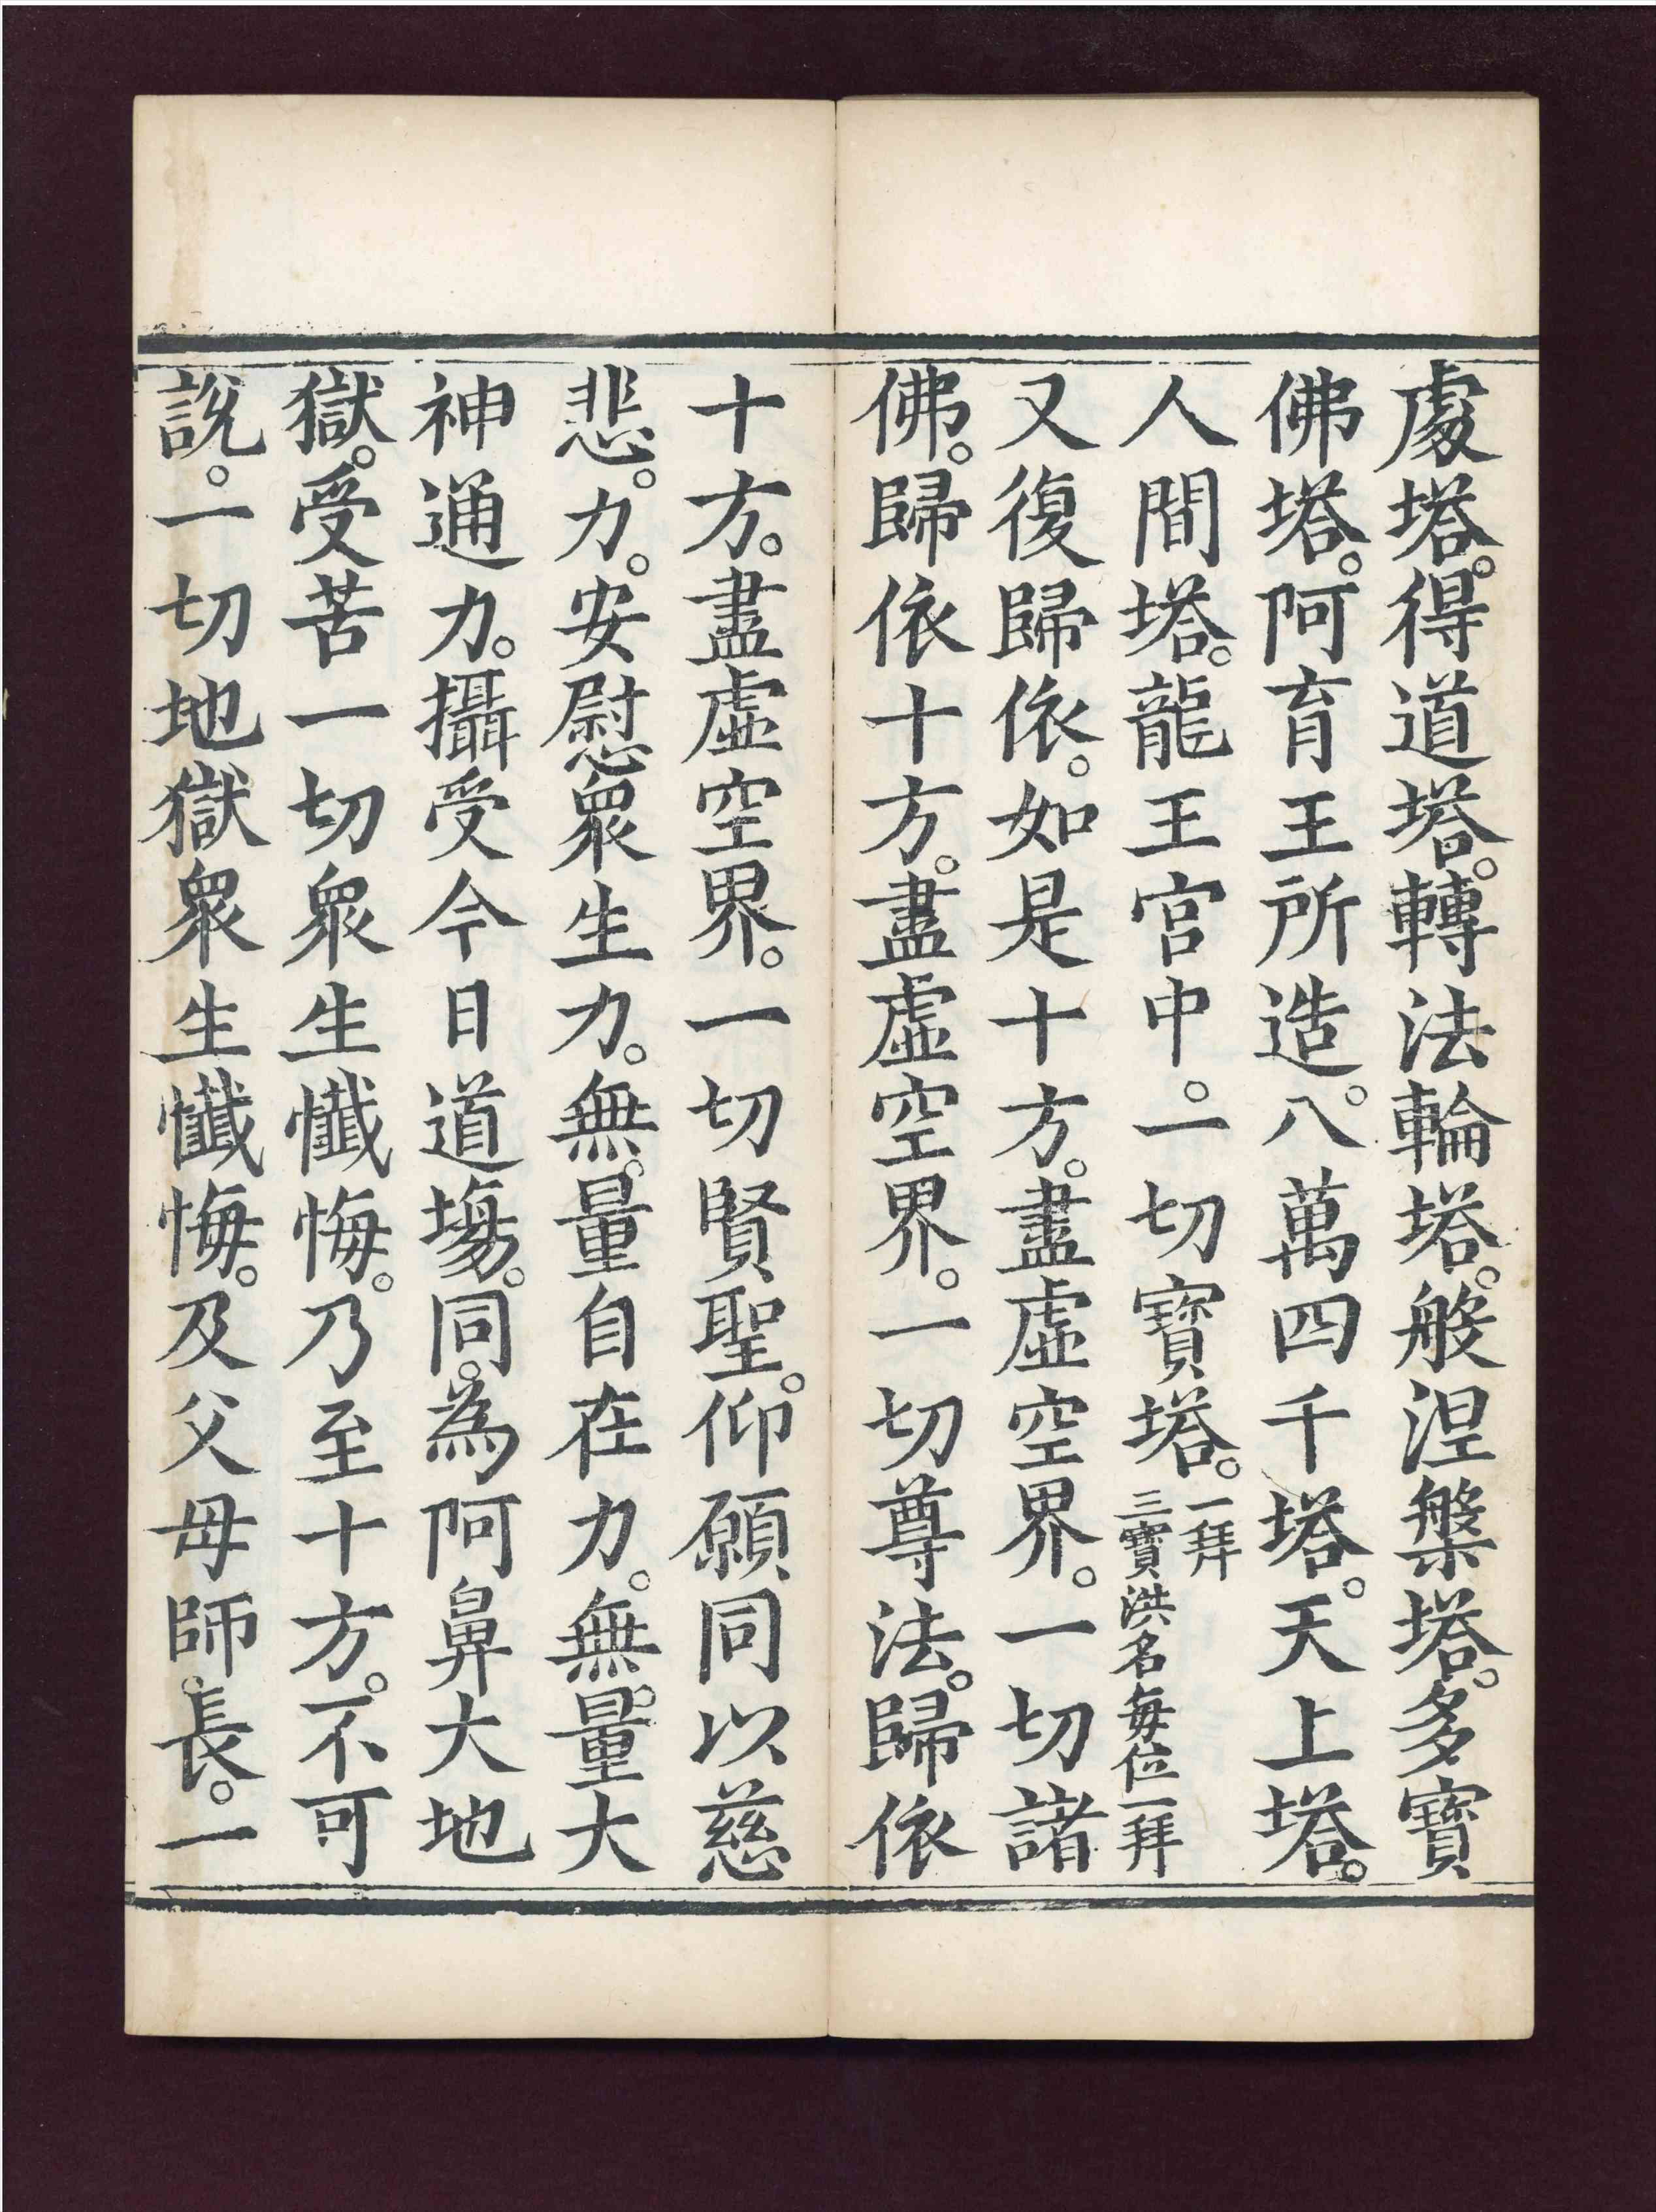 處塔。得道塔。轉法輪塔。般涅槃塔。多寶
佛塔。阿育王所造。八萬四千塔。天上塔。
人間塔。龍王宮中。一切寶塔。一拜三寶洪名每位一拜
又復歸依。如是十方。盡虛空界。一切諸
佛。歸依十方。盡虛空界。一切尊法。歸依
十方。盡虛空界。一切賢聖。仰願同以慈
悲。力。安慰衆生力。無。量自在力。無。量大
神通力。攝受今日道場。同。為阿鼻大地
獄。受苦一切衆生懺悔。乃至十方。不可
說。一切地獄衆生懺悔。及父母師。長。一